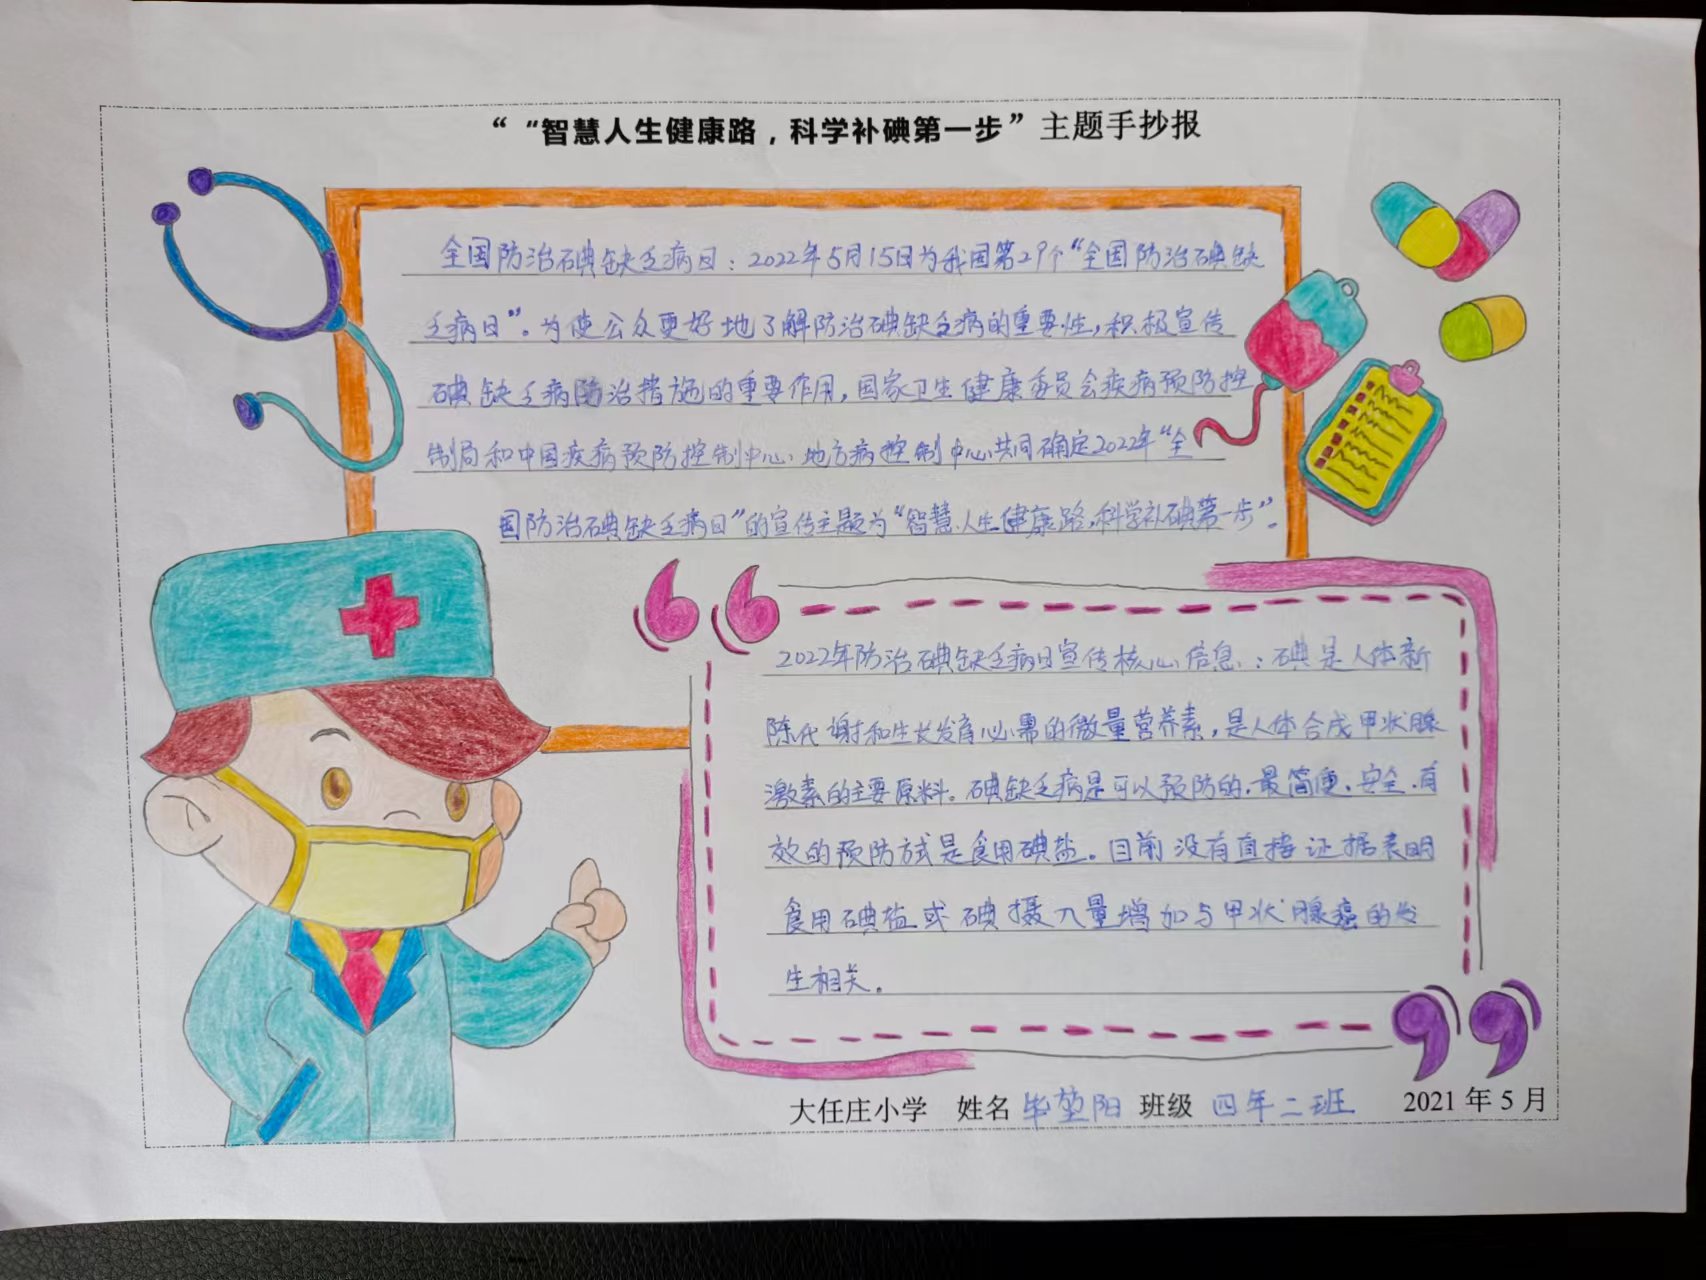 “ “智慧人生健康路，科学补碘第一步” 主题手抄报
全国防治碘缺乏病日：2022年5月15日为我国第29个“全国防治碘缺
乏病日”。为使公众更好地了解防治碘缺乏病的重要性，积极宣传
碘缺乏病防治措施的重要作用，国家卫生健康委员会疾病预防控
制局和中国疾病预防控制中心、地方病控制中心共同确定2022年“全
国防治碘缺乏病日”的宣传主题为“智慧人生健康路，科学补碘第一步”。
2022年防治碘缺乏病日宣传核心信息：碘是人体新
陈代谢和生长发育必需的微量营养素，是人体合成甲状腺
激素的主要原料。碘缺乏病是可以预防的，最简便、安全、有
效的预防方式是食用碘盐。目前没有直接证据表明
食用碘盐或碘摄入量增加与甲状腺癌的发
生相关。
大任庄小学 姓名 毕堃阳 班级 四年二班 2021 年 5 月